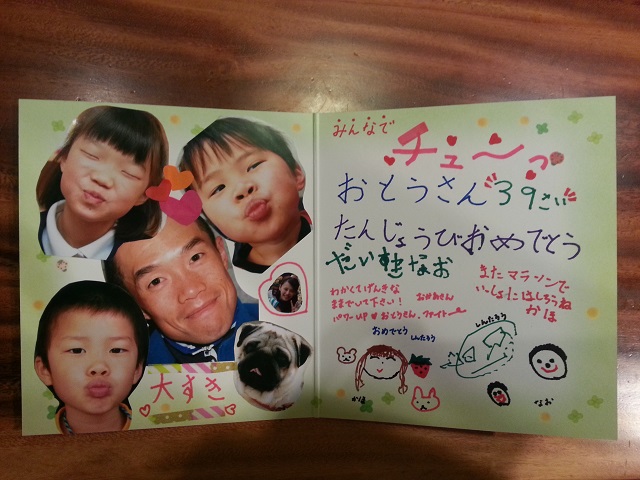 大すき
みんなで
チュ〜っ
おとうさん 39さい
たんじょうびおめでとう
だい好 なお
わかくてげんきな
ままでいて下さい!
おかあさん
パワーUP おとうさん、ファイトー
またマラソンで
いっしょにはしろうね
かほ
おめでとう
しんたろう
しんたろう
かほ
なお